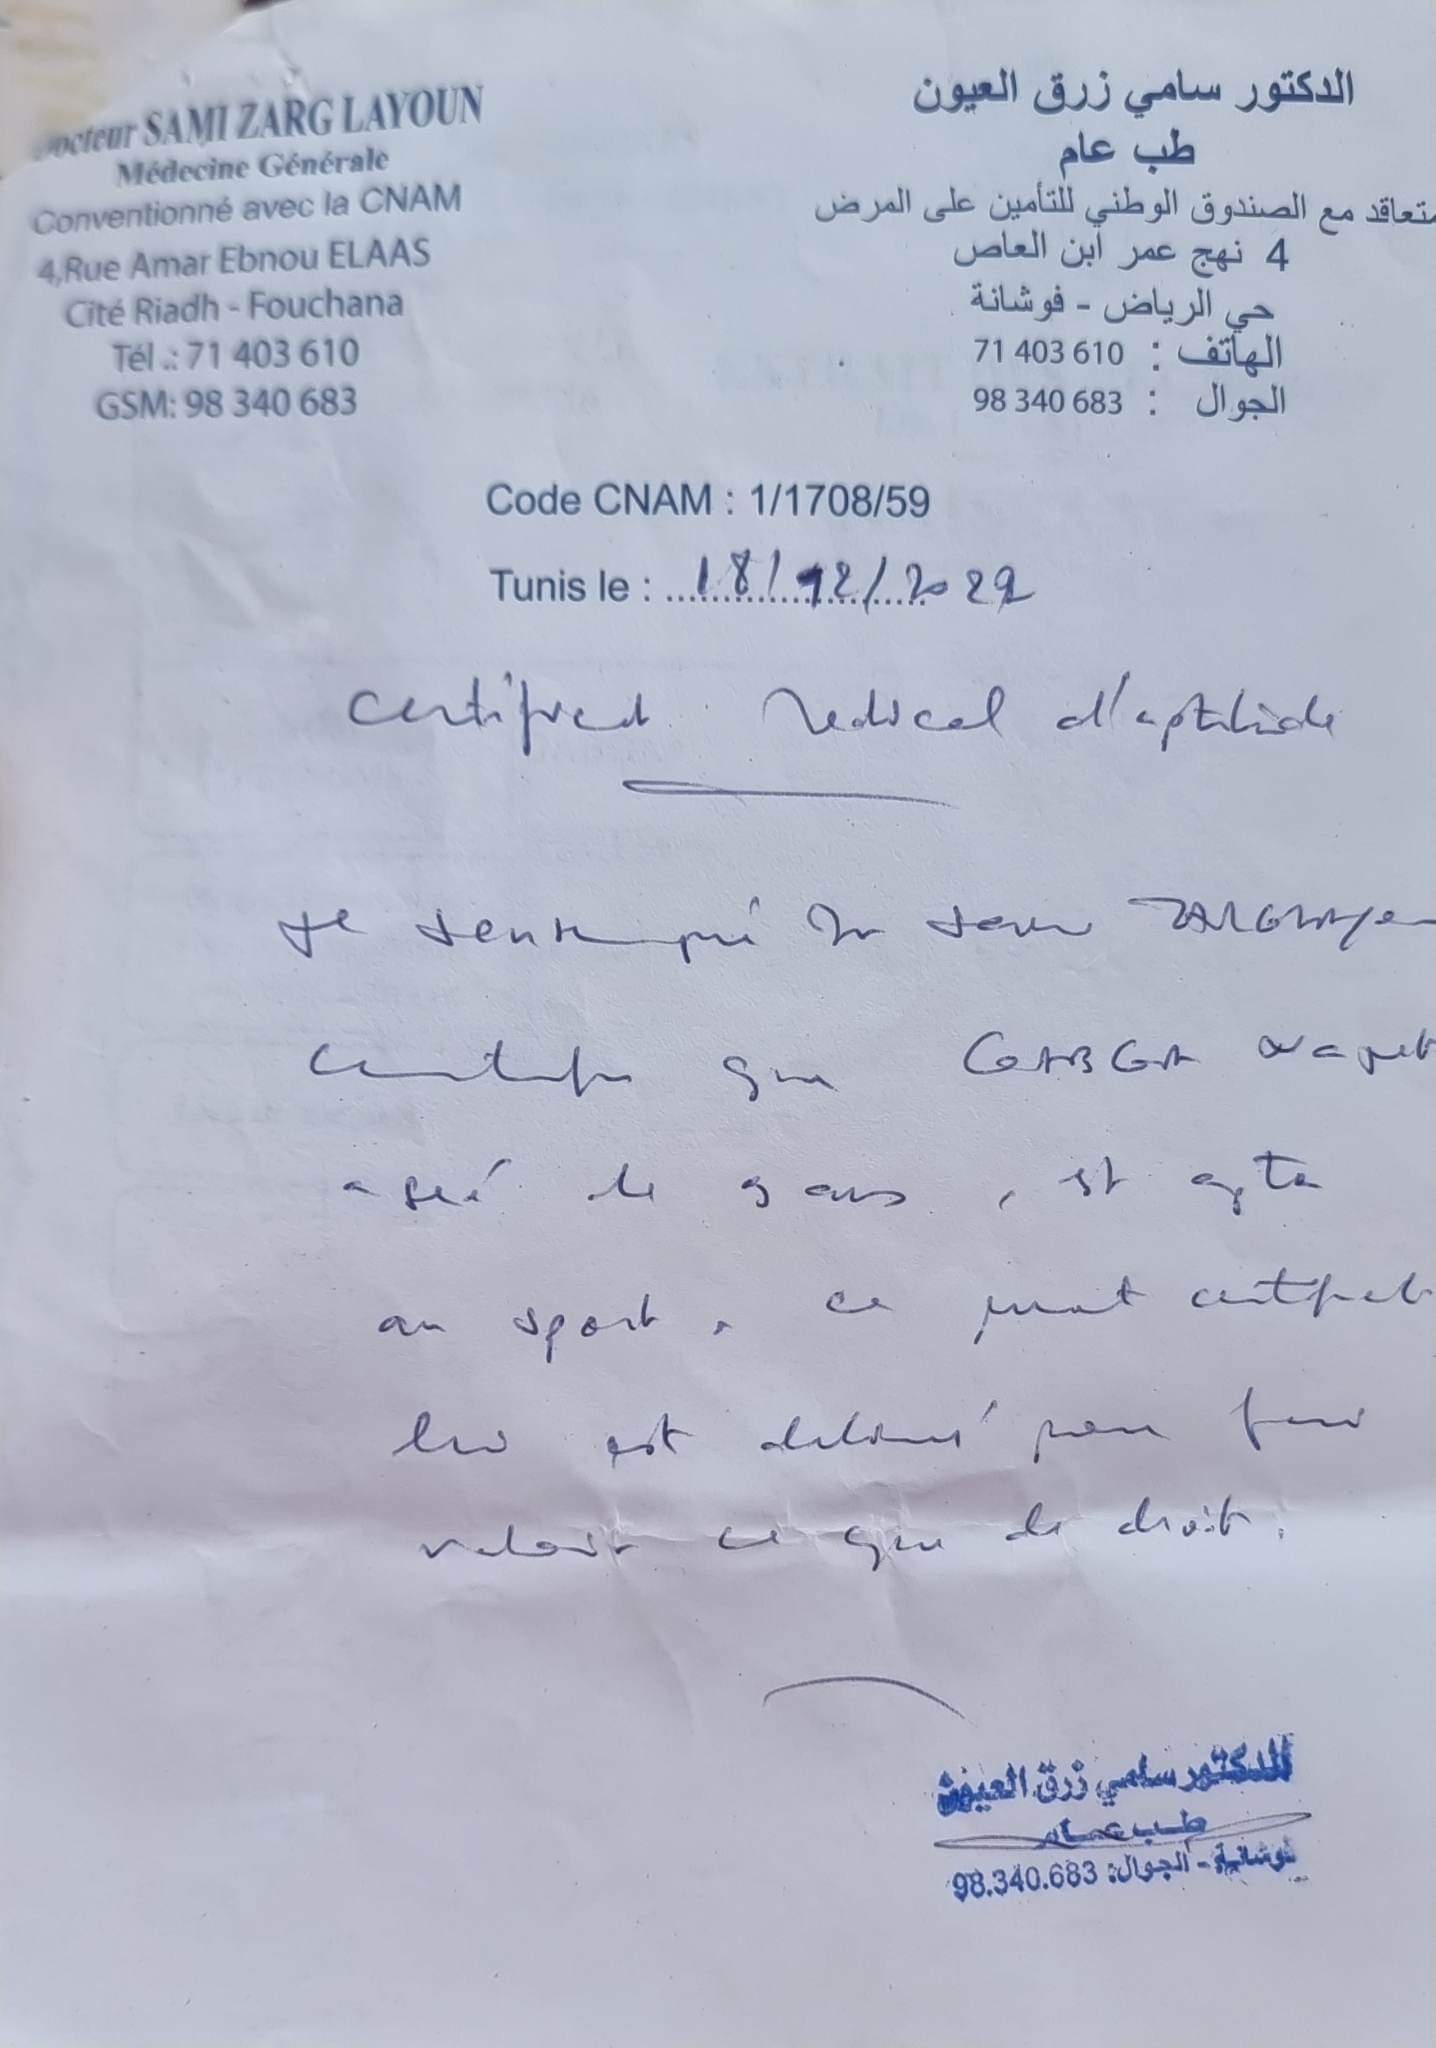 Docteur SAMI ZARG LAYOUN
Médecine Générale
Conventionné avec la CNAM
4,Rue Amar Ebnou ELAAS
Cité Riadh - Fouchana
Tél .: 71 403 610
GSM: 98 340 683
الدكتور سامي زرق العيون
طب عام
متعاقد مع الصندوق الوطني للتأمين على المرض
4 نهج عمر ابن العاص
حي الرياض - فوشانة
الهاتف : 71 403 610
الجوال : 98 340 683
Code CNAM : 1/1708/59
Tunis le : 18/12/2022
Certificat Médical d'aptitude
Je soussigné Dr Sami ZARGLAYOUN
certifie que
agé de 9 ans, est apte
au sport. ce présent certificat
lui est délivré pour faire
valoir ce que de droit.
الدكتور سامي زرق العيون
طب عام
فوشانة - الجوال: 98.340.683